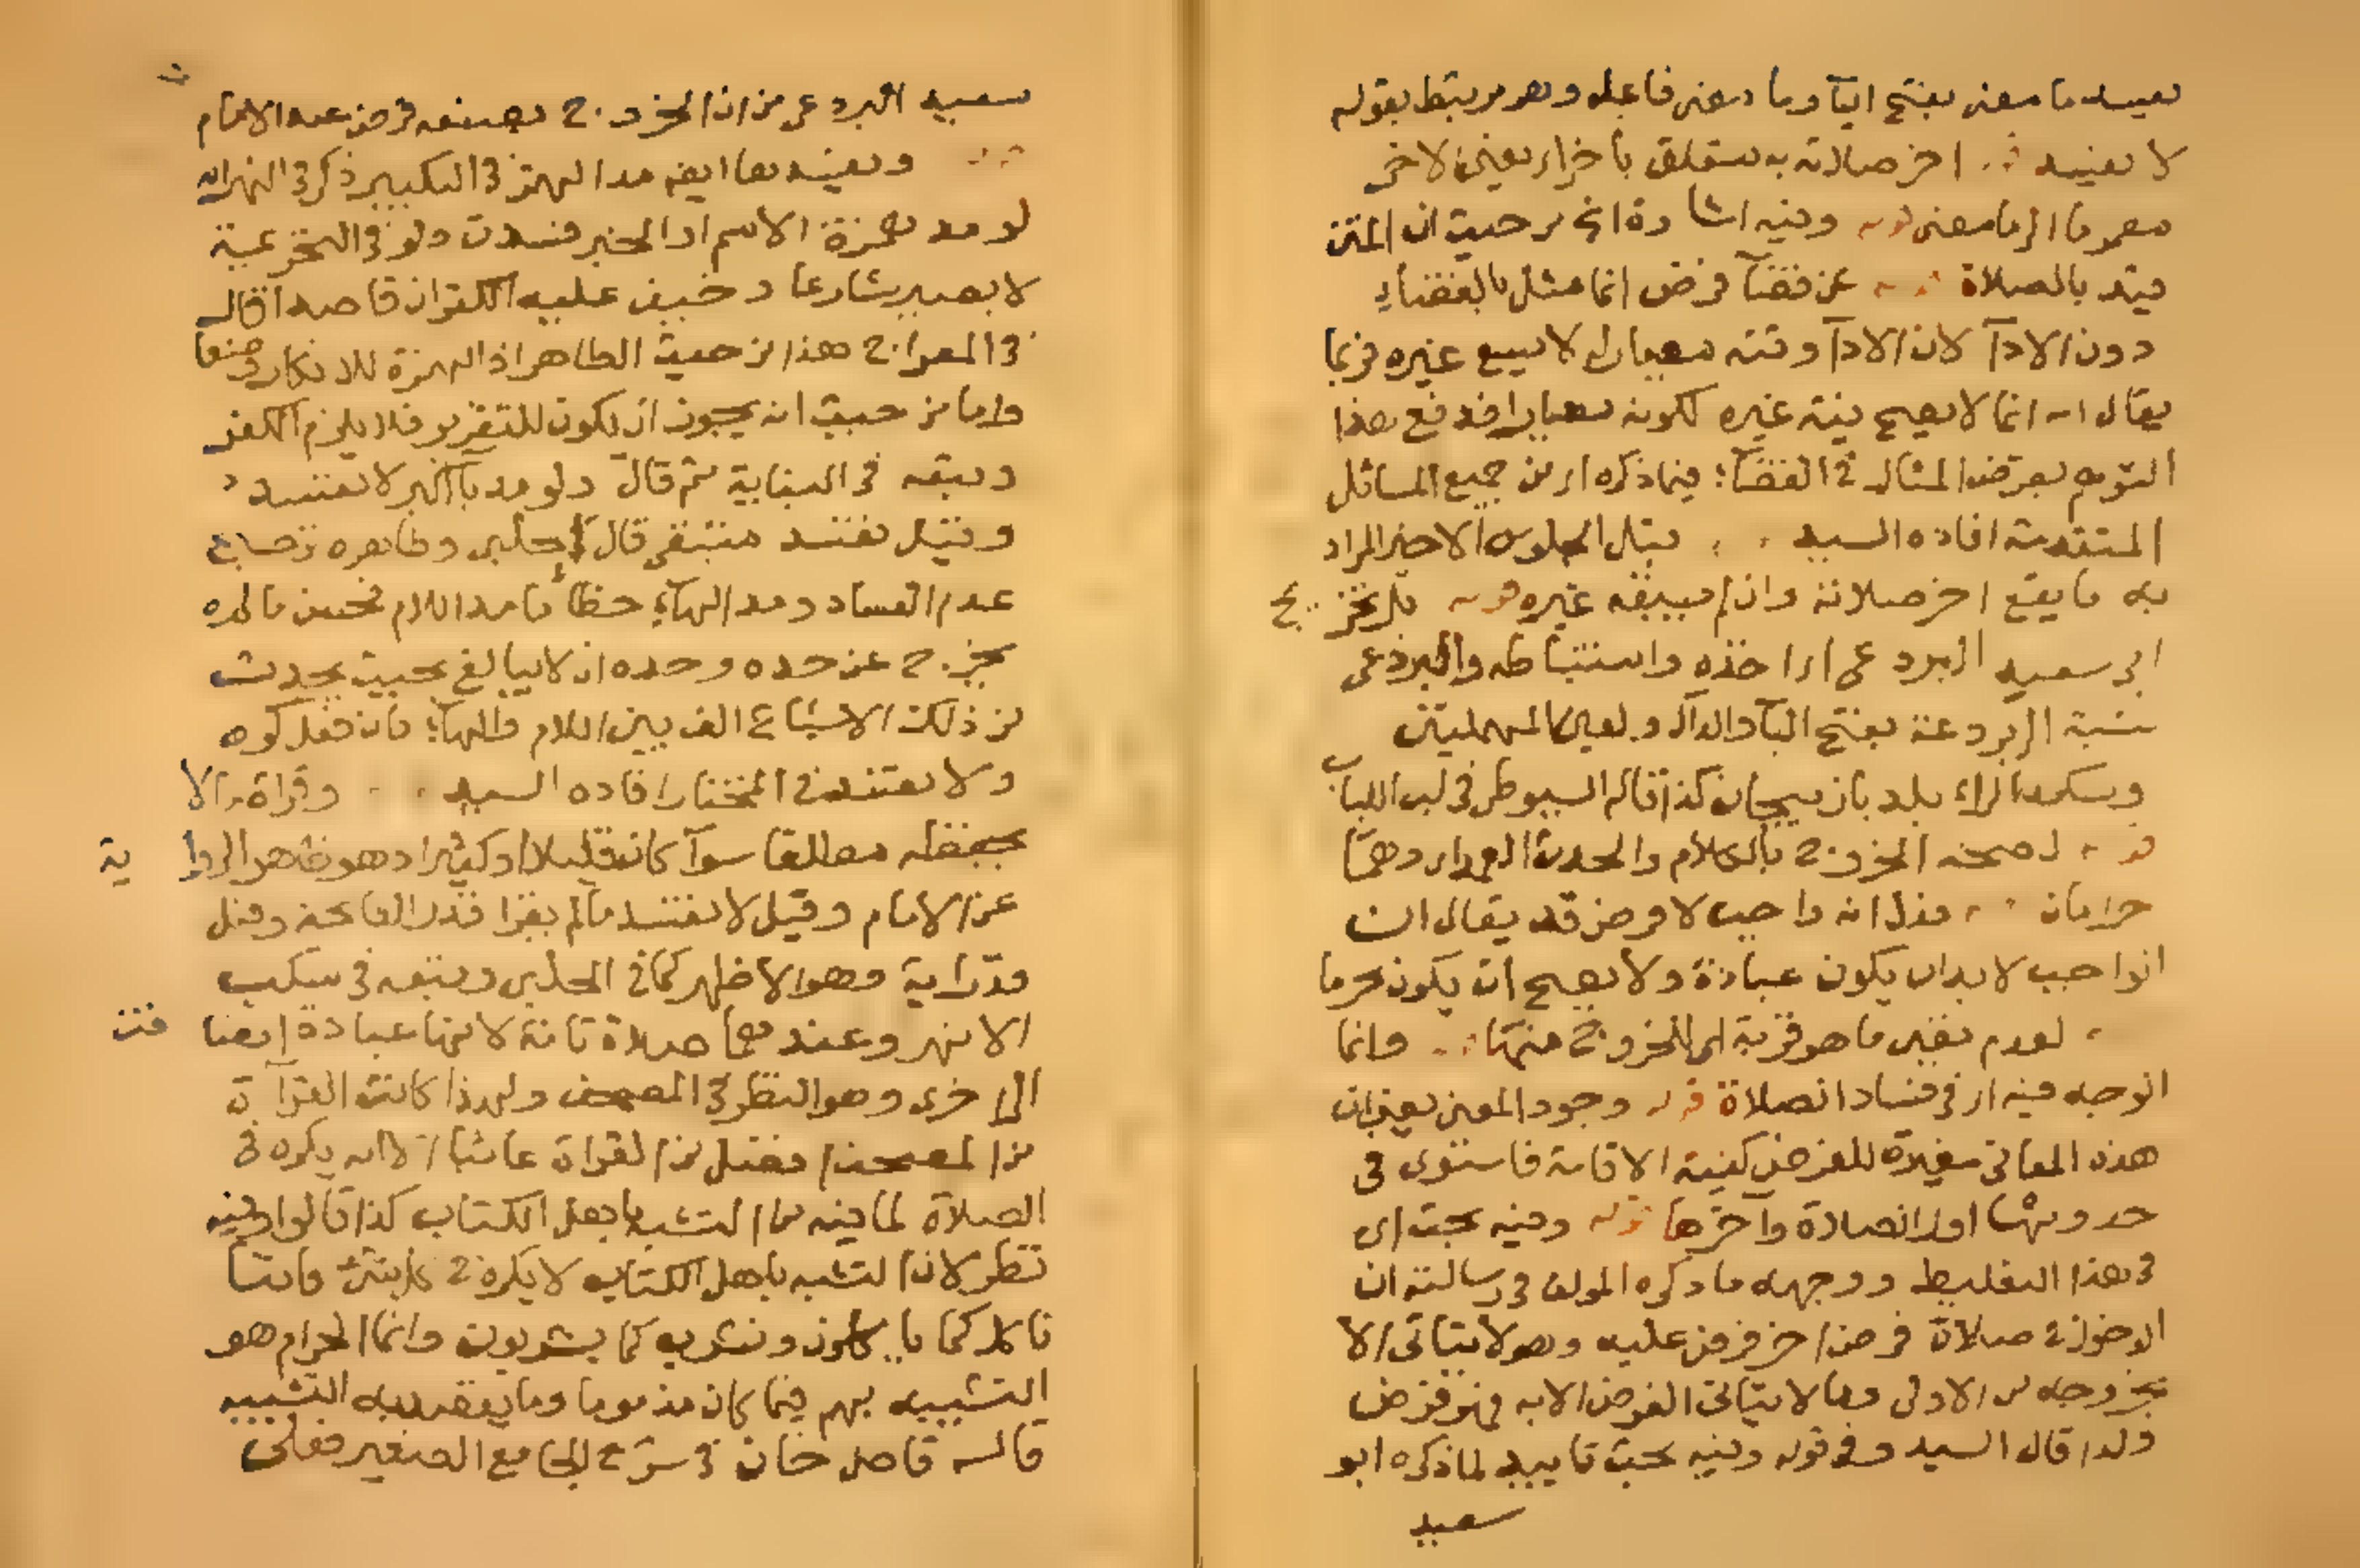 يفيد ما معنى بفتح اليآ وما معنى فاعله وهو مرتبط بقوله
لا يفيد اخر صلاته به ستعلق باخراء يعنى لاخر
معمو ما الى ما معنى قوله وفيه اشارة الخ من حيث ان المتن
قيد بالصلاة قوله عن قضآ فرض انما مثل بالقضاء
دون الادآ لان الادآ وقته معيار لا يسع غيره فربما
يقال انه انما لا يصح نية غيره لكونه معيارا فدفع بهذا
التوهم بعرض المثال فى القضآء فيما ذكره اى من جميع المسائل
المتقدمة افاده السيد قبل الجلوس الاخير المراد
به ما يقع اخر صلاته وان لم يسبقه غيره قوله على تخريج
ابى سعيد البردعى اى اخذه واستنباطه والبردعى
نسبة الى بردعة بفتح البآ والدال والعين المهملتين
وسكون الراء بلد باذربيجان كذا قاله السيوطى فى لب اللباب
قوله لصحة الخروج بالكلام والحدث العمد اى وهما
حرامان فدل انه واجب لا فرض قد يقال ان
الواجب لا بد ان يكون عبادة ولا يصح ان يكون محرما
لعدم تعين ما هو قربة اى للخروج منها وانما
الوجه فيه اى فى فساد الصلاة قوله وجود المعنى يعنى ان
هذه المعانى مغيرة للفرض كنية الاقامة فاستوى فى
حدوثها اول الصلاة وآخرها قوله وفيه بحث اى
فى هذا التغليط ووجهه ما ذكره المولف فى رسالته ان
الدخول فى صلاة فرض اخر فرض عليه وهو لا يتاتى الا
بخروجه من الاولى وما لا يتاتى الفرض الا به فهو فرض
ولذا قال السيد وفى قوله وفيه بحث تاييد لما ذكره ابو
سعيد
سعيد البردعى من ان الخروج بصنعه فرض عند الامام
قوله ويفيدها ايضا مد الهمز فى التكبير ذكر فى النهر انه
لو مد همزة الاسم او الخبر فسدت ولو فى التحريمة
لا يصير شارعا وخيف عليه الكفر ان قاصدا قال
فى المعراج هذا من حيث الظاهر اذ الهمزة للانكار وضعا
واما من حيث انه يجوز ان يكون للتقرير فلا يلزم الكفر
وتبعه فى العناية ثم قال ولو مد بآ اكبر لا تفسد
وقيل تفسد منتقى قال الحلبى وظاهره ترجيح
عدم الفساد ومد الهآء خطأ واما مد اللام فحسن ما لم
يخرج عن حده وحده ان لا يبالغ بحيث يحدث
من ذلك الاشباع الف بين اللام والهآء فان فعل كره
ولا تفسد فى المختار افاده السيد وقراة ما لا
يحفظه مطلقا سوآ كان قليلا او كثيرا وهو ظاهر الرواية
عن الامام وقيل لا تفسد ما لم يقرا قدر الفاتحة وقيل
قدر اية وهو الاظهر كما فى الحلبى وتبعه فى سكب
الانهر وعندهما صلاة تامة لانها عبادة انضافت
الى اخرى وهو النظر فى المصحف ولهذا كانت القرآة
من المصحف افضل من القراة غائبا الا انه يكره فى
الصلاة لما فيه من التشبه باهل الكتاب كذا قالوا وفيه
نظر لان التشبه باهل الكتاب لا يكره فى كل شئ فانا
ناكل كما ياكلون ونشرب كما يشربون وانما الحرام هو
التشبيه بهم فيما كان مذموما وما يقصد به التشبيه
قاله قاضى خان فى شرح الجامع الصغير فعلى